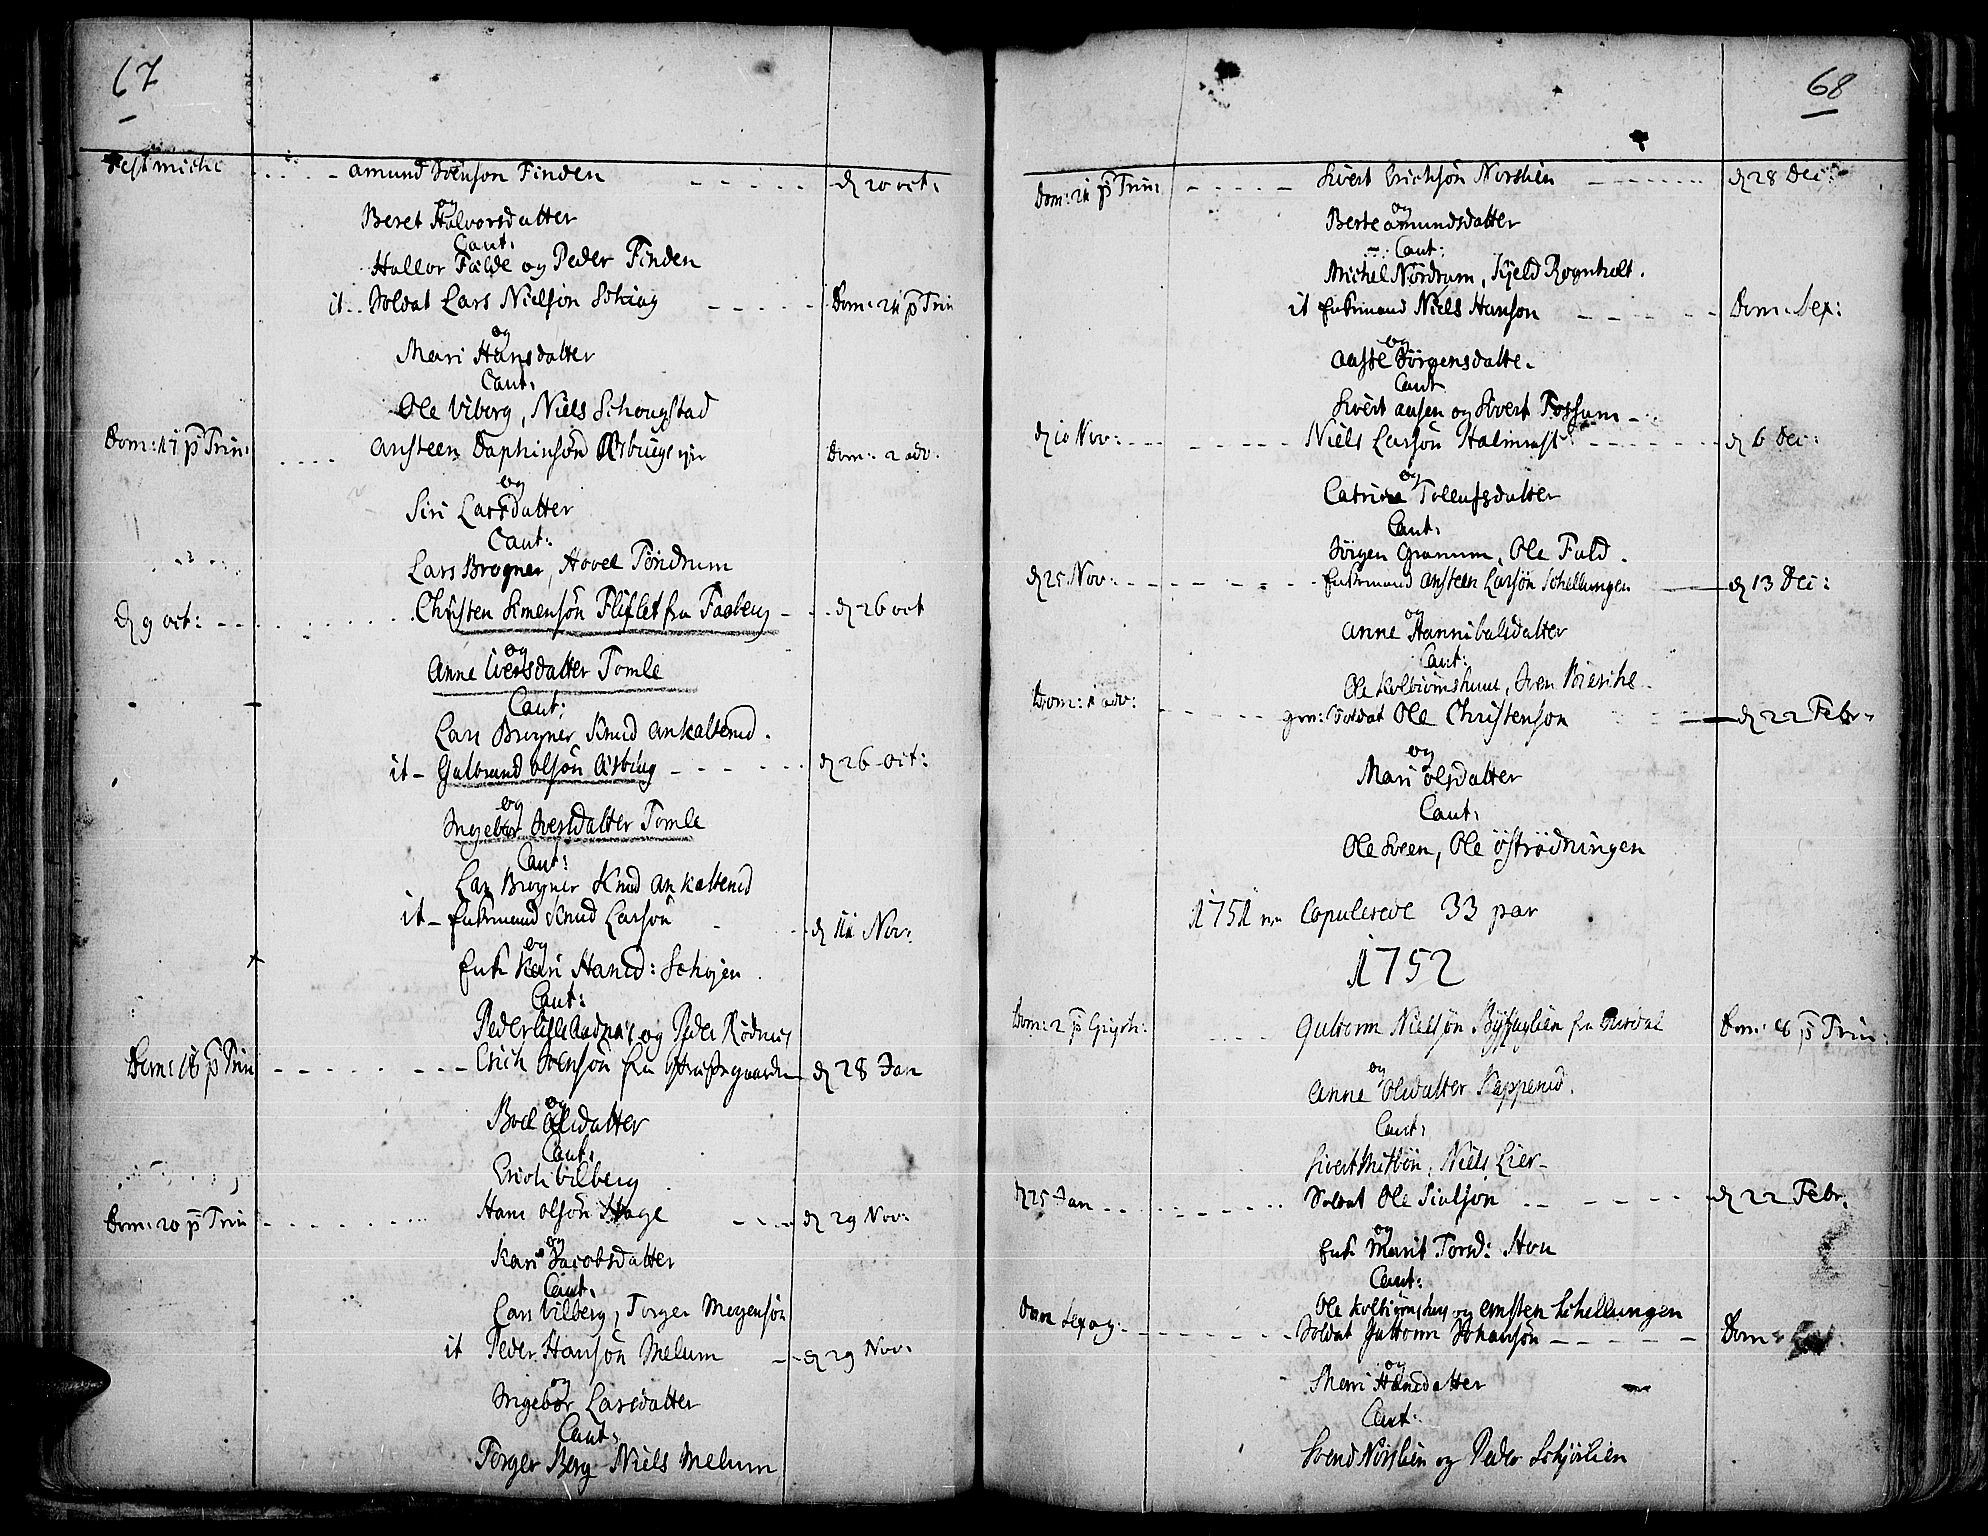 67
Fest Mich: Amund Svenson Finden d 20 oct:
og
Beret Halvorsdatter
Caut:
Hallor Falde og Peder Finden
it Soldat Lars Nielson Dom: 21 p Trin
og
Mari Hansdatter
Caut:
Ole Viborg, Niels Schougstad
Dom: 17 p Trin: Ansteen Dom: 2 adv:
og
Siri Larsdatter
Caut:
Lars Brogner, Hovel Tondrum
d 9 oct: Christen Simensön Fliflet fra Faaberg d 26 oct
og
Anne Iversdatter Tomle
Caut:
Lars Brogner Knud
it Gulbrand olsön d 26 oct:
og
Ingebor Iversdatter Tomle
Caut:
Lars Brogner Knud
it Enkemand Knud Larsön d 11 Nov:
og
Enke Kari Hansd: Schojen
Caut:
Peder og Peder
Dom: 18 p Trin Erich Svensön fra d 28 Jan
og
Boel olsdatter
Caut:
Erich Vilberg
Dom: 20 p Trin Hans olsön d 29 Nov:
og
Kari Jacobsdatter
Caut:
Lars Vilberg, Torger Mogensön
it Peder Hansön Melum d 29 Nov:
og
Ingebor Larsdatter
Caut:
Torger Berg Niels Melum
68
Dom: 21 p Trin: Sivert Erichsön Norslien d 28 Dec:
og
Berte amundsdatter
Caut:
Michel Nordrum, Kjeld Rognholt.
it Enkemand Niels Hanson Dom: Sex:
og
Aaste Jörgensdatte.
Caut
Sivert ausen og Sivert Fossum
d 10 Nov: Niels Larsön d 6 Dec:
og
Catrine Tollefsdatter
Caut:
Jörgen Granum, Ole Fald.
d 25 Nov: Enkemand Ansteen Larsön Schellungen d 13 Dec:
og
Anne Hannibalsdatter
Caut:
Ole, Sven
Dom: 1 adv: gev: Soldat Ole Christenson d 22 Febr.
og
Mari olsdatter
Caut:
Ole Sveen, Ole öströdningen
1751 Copulerede 33 par
1752
Dom: 2 p Epiph: Guttorm Nielsön Dom: 8 p Trin:
og
Anne Olsdatter
Caut:
Sivert, Niels Lier
d 25 Jan Soldat Ole Siulson d 22 Febr.
og
Enke Marit Torsd: Hou
Caut:
Ole og Ensten Schellungen
Dom Sexag: Soldat Guttorm Johansön Dom:
og
Mari Hansdatter
Caut:
Svend Norslien og Peder Schjörlien